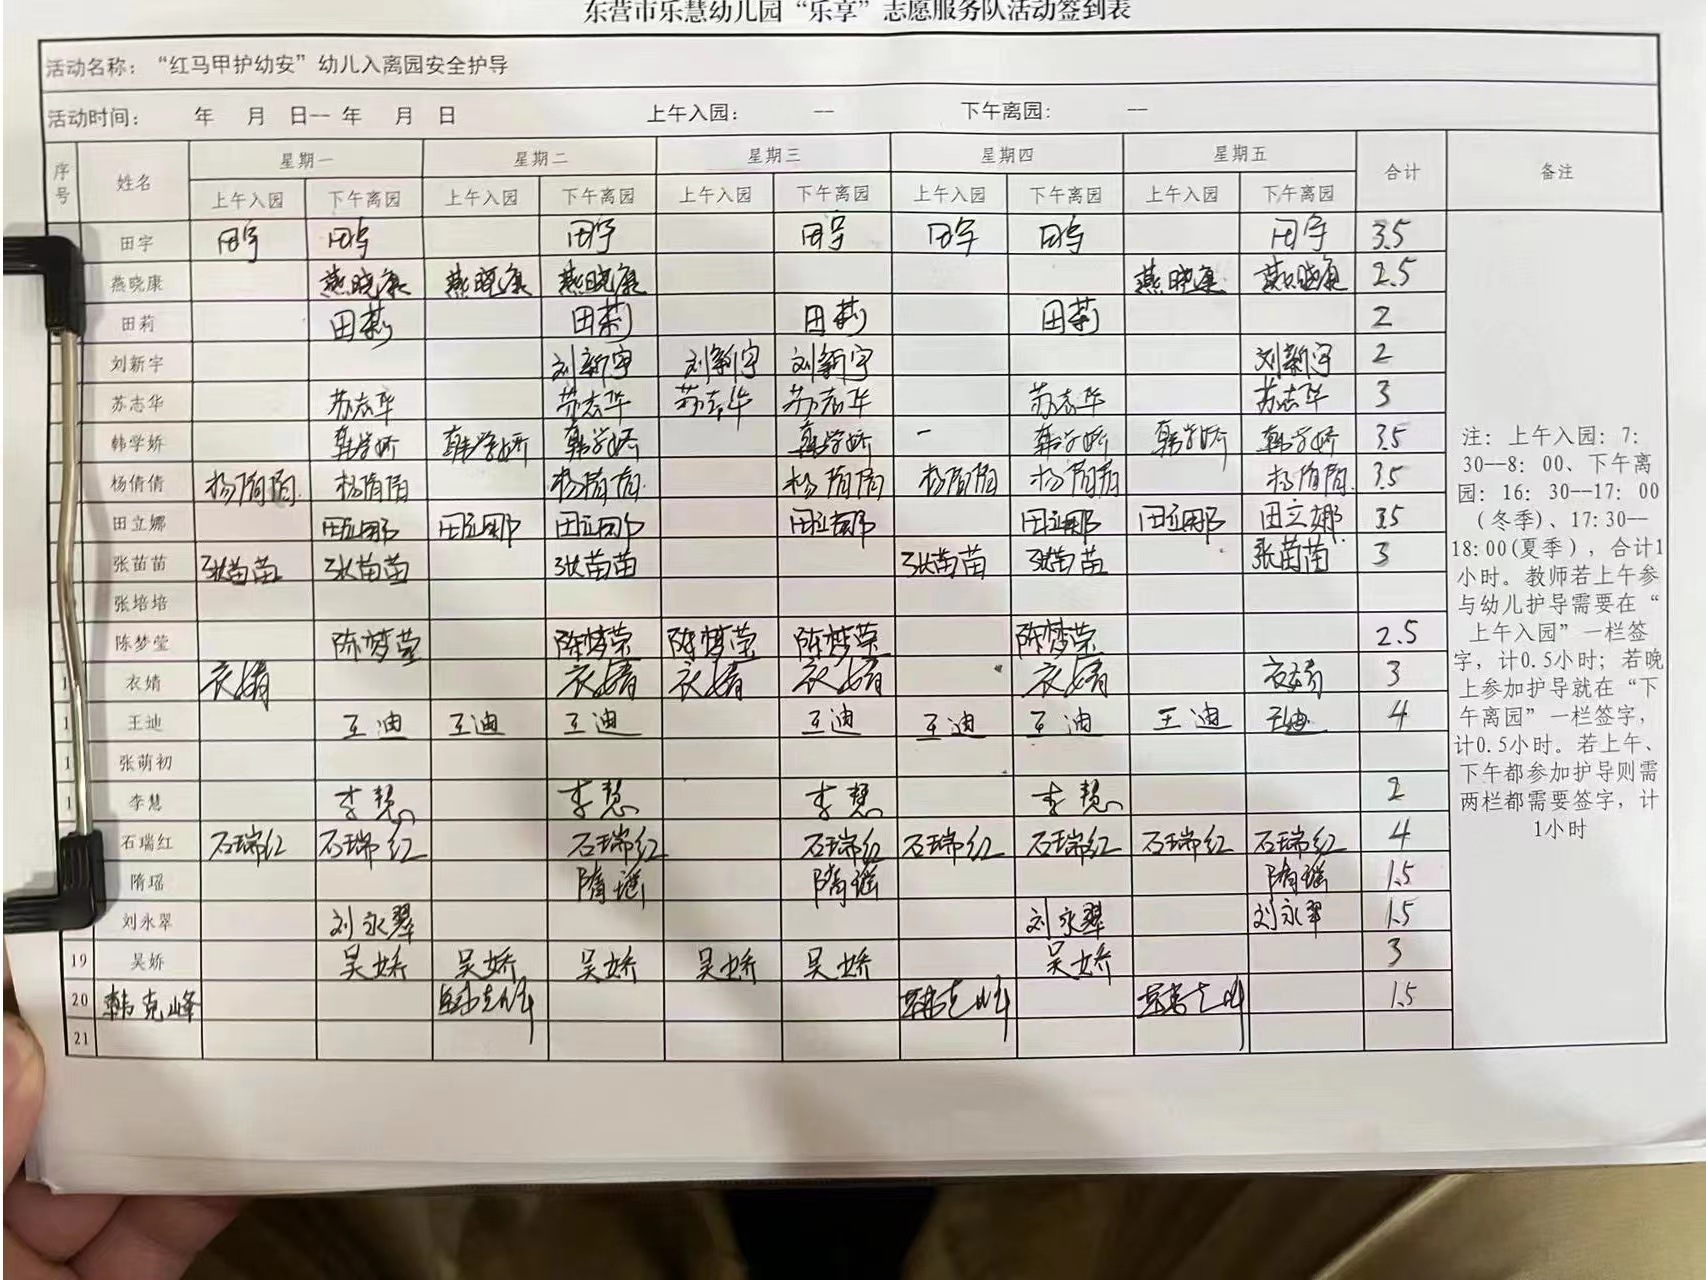 东营市乐慧幼儿园“乐享”志愿服务队活动签到表
活动名称：“红马甲护幼安”幼儿入离园安全护导
活动时间： 年 月 日-- 年 月 日 上午入园： -- 下午离园： --
序号 姓名 星期一 星期二 星期三 星期四 星期五 合计 备注
上午入园 下午离园 上午入园 下午离园 上午入园 下午离园 上午入园 下午离园 上午入园 下午离园
田宇 田宇 田宇 田宇 田宇 田宇 田宇 田宇 3.5
燕晓康 燕晓康 燕晓康 燕晓康 燕晓康 燕晓康 2.5
田莉 田莉 田莉 田莉 田莉 2
刘新宇 刘新宇 刘新宇 刘新宇 刘新宇 2
苏志华 苏志华 苏志华 苏志华 苏志华 苏志华 苏志华 3
韩学娇 韩学娇 韩学娇 韩学娇 韩学娇 - 韩学娇 韩学娇 韩学娇 3.5
杨倩倩 杨倩倩 杨倩倩 杨倩倩 杨倩倩 杨倩倩 杨倩倩 杨倩倩 3.5
田立娜 田立娜 田立娜 田立娜 田立娜 田立娜 田立娜 田立娜 3.5
张苗苗 张苗苗 张苗苗 张苗苗 张苗苗 张苗苗 张苗苗 3
张培培
陈梦莹 陈梦莹 陈梦莹 陈梦莹 陈梦莹 陈梦莹 2.5
1 衣婧 衣婧 衣婧 衣婧 衣婧 衣婧 衣婧 3
1 王迪 王迪 王迪 王迪 王迪 王迪 王迪 王迪 王迪 4
1 张萌初
1 李慧 李慧 李慧 李慧 李慧 2
石瑞红 石瑞红 石瑞红 石瑞红 石瑞红 石瑞红 石瑞红 石瑞红 石瑞红 4
隋瑶 隋瑶 隋瑶 隋瑶 1.5
刘永翠 刘永翠 刘永翠 刘永翠 1.5
19 吴娇 吴娇 吴娇 吴娇 吴娇 吴娇 吴娇 3
20 韩克峰 韩克峰 韩克峰 韩克峰 1.5
21
注：上午入园：7:
30—8：00、下午离
园：16：30—17：00
（冬季）、17:30—
18:00(夏季），合计1
小时。教师若上午参
与幼儿护导需要在“
上午入园”一栏签
字，计0.5小时；若晚
上参加护导就在“下
午离园”一栏签字，
计0.5小时。若上午、
下午都参加护导则需
两栏都需要签字，计
1小时